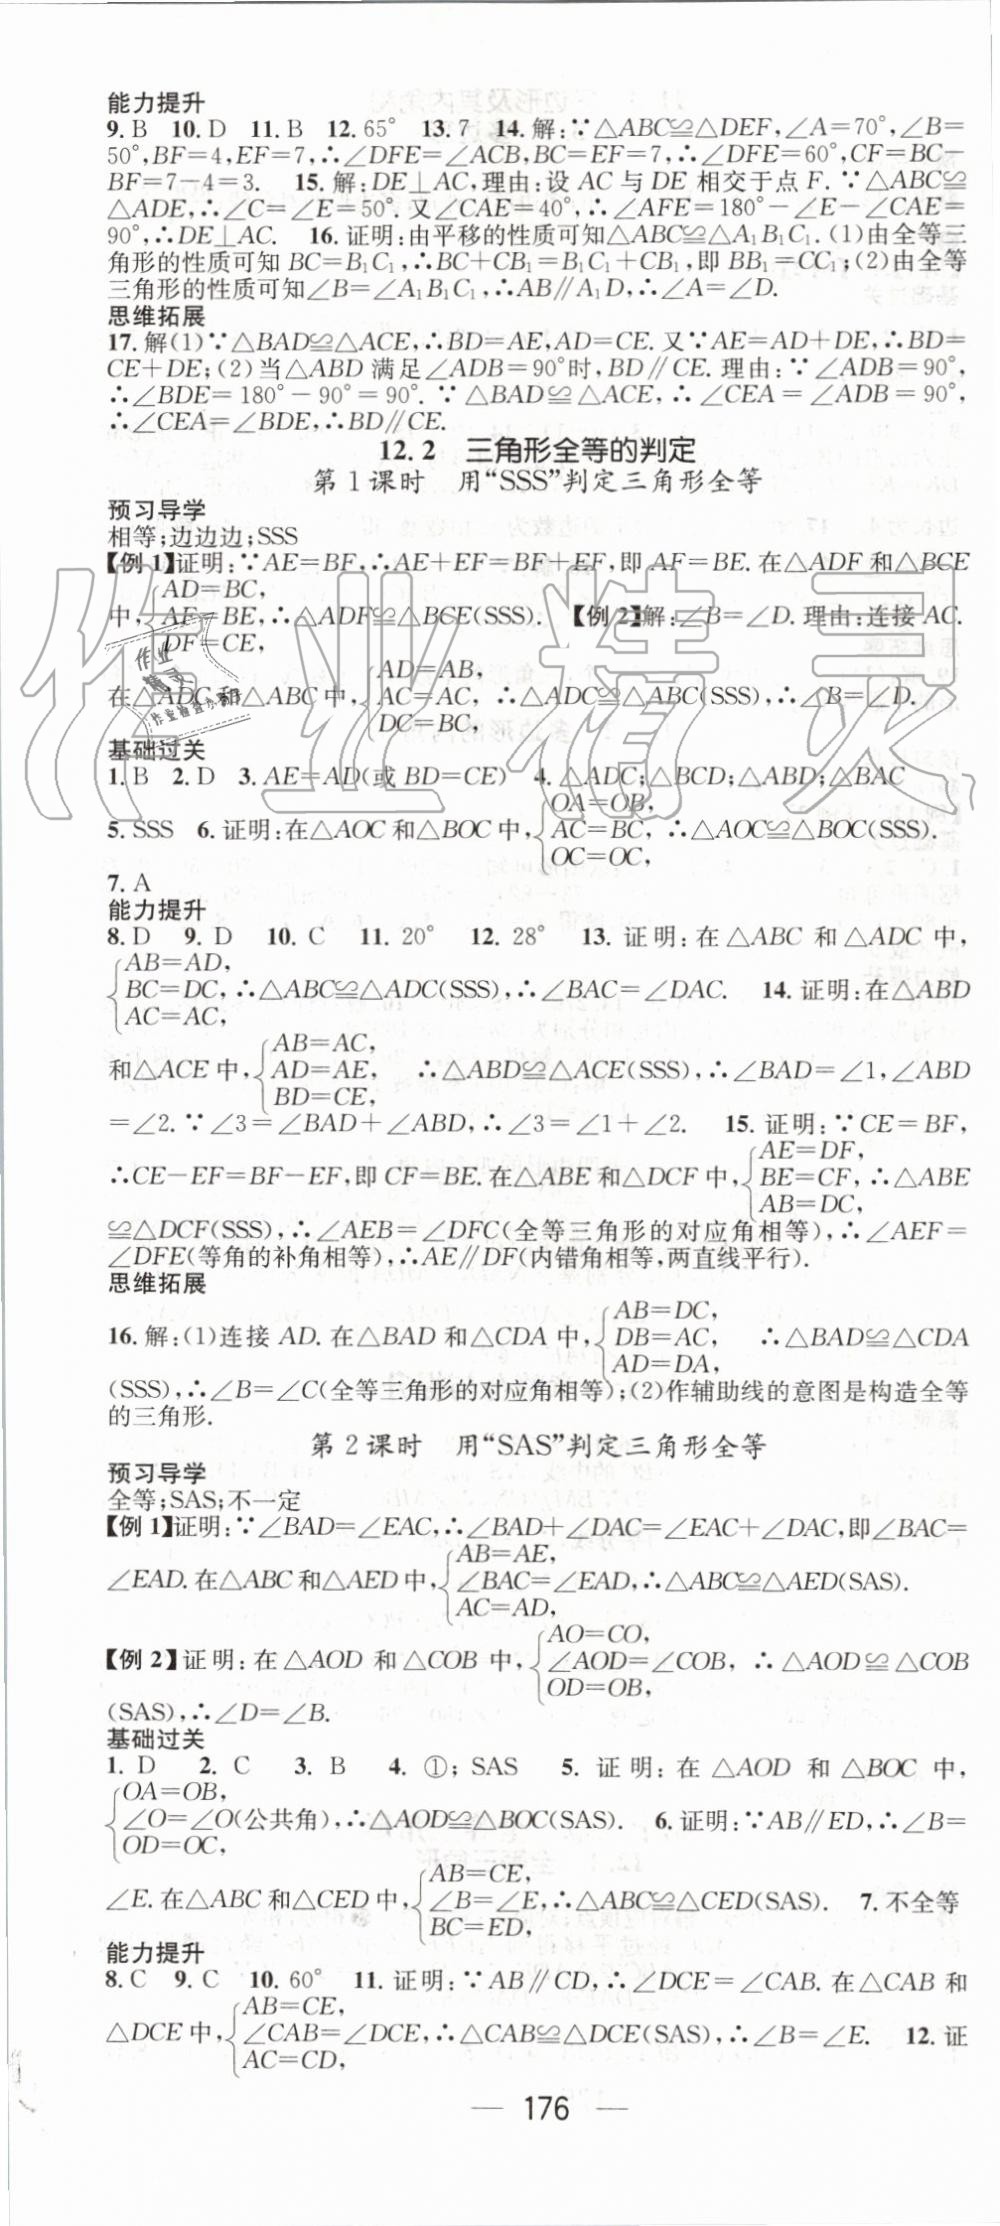 能力提升
9. B 10. D 11. B 12. 65° 13. 7 14. 解:∵△ABC≌△DEF,∠A=70°,∠B=
50°,BF=4,EF=7,∴∠DFE=∠ACB,BC=EF=7,∴∠DFE=60°,CF=BC-
BF=7-4=3. 15. 解:DE⊥AC,理由:设 AC 与 DE 相交于点 F. ∵△ABC≌
△ADE,∴∠C=∠E=50°. 又∠CAE=40°,∴∠AFE=180°-∠E-∠CAE=
90°,∴DE⊥AC. 16. 证明:由平移的性质可知△ABC≌△A₁B₁C₁.(1)由全等三
角形的性质可知 BC=B₁C₁,∴BC+CB₁=B₁C₁+CB₁,即 BB₁=CC₁;(2)由全等
三角形的性质可知∠B=∠A₁B₁C₁,∴AB∥A₁D,∴∠A=∠D.
思维拓展
17. 解(1)∵△BAD≌△ACE,∴BD=AE,AD=CE. 又∵AE=AD+DE,∴BD=
CE+DE;(2)当△ABD 满足∠ADB=90°时,BD∥CE. 理由:∵∠ADB=90°,
∴∠BDE=180°-90°=90°. ∵△BAD≌△ACE,∴∠CEA=∠ADB=90°,
∴∠CEA=∠BDE,∴BD∥CE.
12.2 三角形全等的判定
第 1 课时 用“SSS”判定三角形全等
预习导学
相等;边边边;SSS
【例 1】证明:∵AE=BF,∴AE+EF=BF+EF,即 AF=BE. 在△ADF 和△BCE
AD=BC,
中,{AF=BE,∴△ADF≌△BCE(SSS). 【例 2】解:∠B=∠D. 理由:连接 AC.
DF=CE,
AD=AB,
在△ADC 和△ABC 中,{AC=AC,∴△ADC≌△ABC(SSS),∴∠B=∠D.
DC=BC,
基础过关
1. B 2. D 3. AE=AD(或 BD=CE) 4. △ADC;△BCD;△ABD;△BAC
OA=OB,
5. SSS 6. 证明:在△AOC 和△BOC 中,{AC=BC,∴△AOC≌△BOC(SSS).
OC=OC,
7. A
能力提升
8. D 9. D 10. C 11. 20° 12. 28° 13. 证明:在△ABC 和△ADC 中,
AB=AD,
{BC=DC,∴△ABC≌△ADC(SSS),∴∠BAC=∠DAC. 14. 证明:在△ABD
AC=AC,
AB=AC,
和△ACE 中,{AD=AE, ∴△ABD≌△ACE(SSS),∴∠BAD=∠1,∠ABD
BD=CE,
=∠2. ∵∠3=∠BAD+∠ABD,∴∠3=∠1+∠2. 15. 证明:∵CE=BF,
AE=DF,
∴CE-EF=BF-EF,即 CF=BE. 在△ABE 和△DCF 中,{BE=CF,∴△ABE
AB=DC,
≌△DCF(SSS),∴∠AEB=∠DFC(全等三角形的对应角相等),∴∠AEF=
∠DFE(等角的补角相等),∴AE∥DF(内错角相等,两直线平行).
思维拓展
AB=DC,
16. 解:(1)连接 AD. 在△BAD 和△CDA 中,{DB=AC, ∴△BAD≌△CDA
AD=DA,
(SSS),∴∠B=∠C(全等三角形的对应角相等);(2)作辅助线的意图是构造全等
的三角形.
第 2 课时 用“SAS”判定三角形全等
预习导学
全等;SAS;不一定
【例 1】证明:∵∠BAD=∠EAC,∴∠BAD+∠DAC=∠EAC+∠DAC,即∠BAC=
AB=AE,
∠EAD. 在△ABC 和△AED 中,{∠BAC=∠EAD,∴△ABC≌△AED(SAS).
AC=AD,
AO=CO,
【例 2】证明:在△AOD 和△COB 中,{∠AOD=∠COB,∴△AOD≌△COB
OD=OB,
(SAS),∴∠D=∠B.
基础过关
1. D 2. C 3. B 4. ①;SAS 5. 证明:在△AOD 和△BOC 中,
OA=OB,
{∠O=∠O(公共角),∴△AOD≌△BOC(SAS). 6. 证明:∵AB∥ED,∴∠B=
OD=OC,
AB=CE,
∠E. 在△ABC 和△CED 中,{∠B=∠E,∴△ABC≌△CED(SAS). 7. 不全等
BC=ED,
能力提升
8. C 9. C 10. 60° 11. 证明:∵AB∥CD,∴∠DCE=∠CAB. 在△CAB 和
AB=CE,
△DCE 中,{∠CAB=∠DCE,∴△CAB≌△DCE(SAS),∴∠B=∠E. 12. 证
AC=CD,
— 176 —
作业精灵